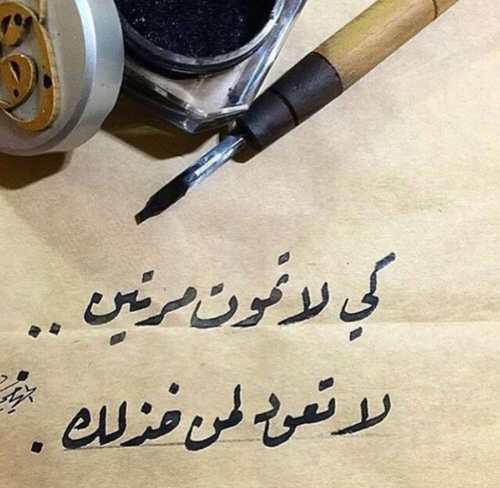 كي لا تموت مرتين ..
لا تعود لمن خذلك .